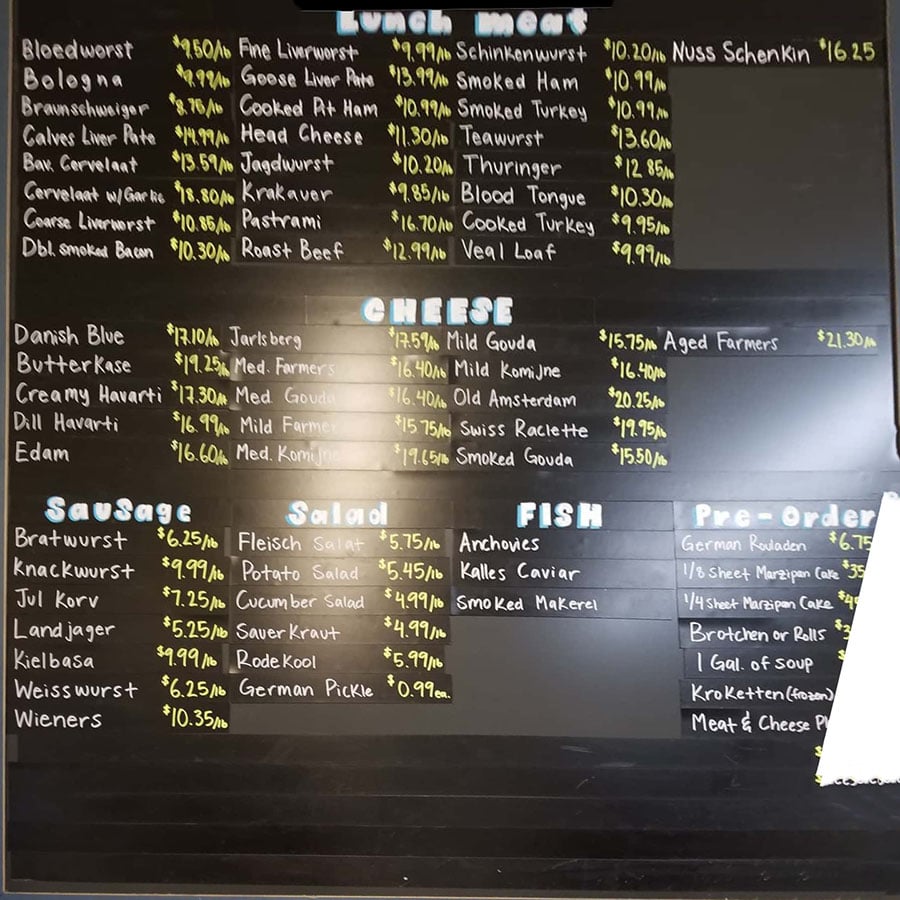 Lunch meat
Bloedworst $9.50/lb
Bologna $9.99/lb
Braunschweiger $8.75/lb
Calves Liver Pate $14.99/lb
Bav. Cervelaat $13.59/lb
Cervelaat w/Garlic $18.80/lb
Coarse Liverworst $10.85/lb
Dbl. smoked Bacon $10.30/lb
Fine Liverworst $9.99/lb
Goose Liver Pate $13.99/lb
Cooked Pit Ham $10.99/lb
Head Cheese $11.30/lb
Jagdwurst $10.20/lb
Krakauer $9.85/lb
Pastrami $16.70/lb
Roast Beef $12.99/lb
Schinkenwurst $10.20/lb
Smoked Ham $10.99/lb
Smoked Turkey $10.99/lb
Teawurst $13.60/lb
Thuringer $12.85/lb
Blood Tongue $10.30/lb
Cooked Turkey $9.95/lb
Veal Loaf $9.99/lb
Nuss Schenkin $16.25
CHEESE
Danish Blue $17.10/lb
Butterkase $19.25/lb
Creamy Havarti $17.30/lb
Dill Havarti $16.99/lb
Edam $16.60/lb
Jarlsberg $17.59/lb
Med. Farmers $16.40/lb
Med. Gouda $16.40/lb
Mild Farmers $15.75/lb
Med. Komijne $19.65/lb
Mild Gouda $15.75/lb
Mild Komijne $16.40/lb
Old Amsterdam $20.25/lb
Swiss Raclette $19.95/lb
Smoked Gouda $15.50/lb
Aged Farmers $21.30/lb
Sausage
Bratwurst $6.25/lb
Knackwurst $9.99/lb
Jul Korv $7.25/lb
Landjager $5.25/lb
Kielbasa $9.99/lb
Weisswurst $6.25/lb
Wieners $10.35/lb
Salad
Fleisch Salat $5.75/lb
Potato Salad $5.45/lb
Cucumber Salad $4.99/lb
Sauer Kraut $4.99/lb
Rode Kool $5.99/lb
German Pickle $0.99ea.
FISH
Anchovies
Kalles Caviar
Smoked Makerel
Pre-Order
German Rouladen $6.75
1/8 Sheet Marzipan Cake $35
1/4 Sheet Marzipan Cake
Brotchen or Rolls
1 Gal. of soup
Kroketten (frozen)
Meat & Cheese